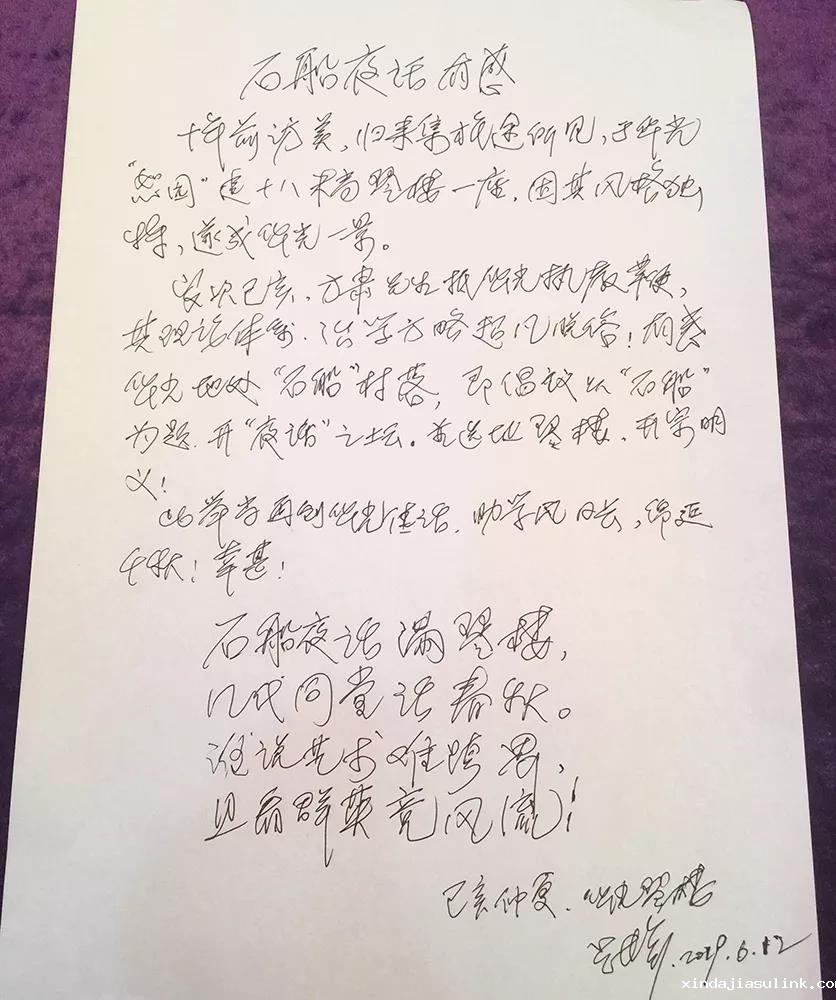 石船夜话有感
十年前访美，归来集旅途所见，于华光
“愨园”建十八米高琴楼一座，因其风格独
特，遂成华光一景。
岁次己亥，方肃先生抵华光执教鞭，
其理论体系、治学方略超凡脱俗！有感
华光地处“石船”村落，即倡议以“石船”
为题，开“夜话”之坛。并选址琴楼，开宗明
义！
此举当再创华光佳话，助学风日长，绵延
千秋！幸甚！
石船夜话满琴楼，
几代同堂话春秋。
谁说艺术难跨界，
且看群英竞风流！
己亥仲夏．华光琴楼
2019.6.12
xindajiasulink.com